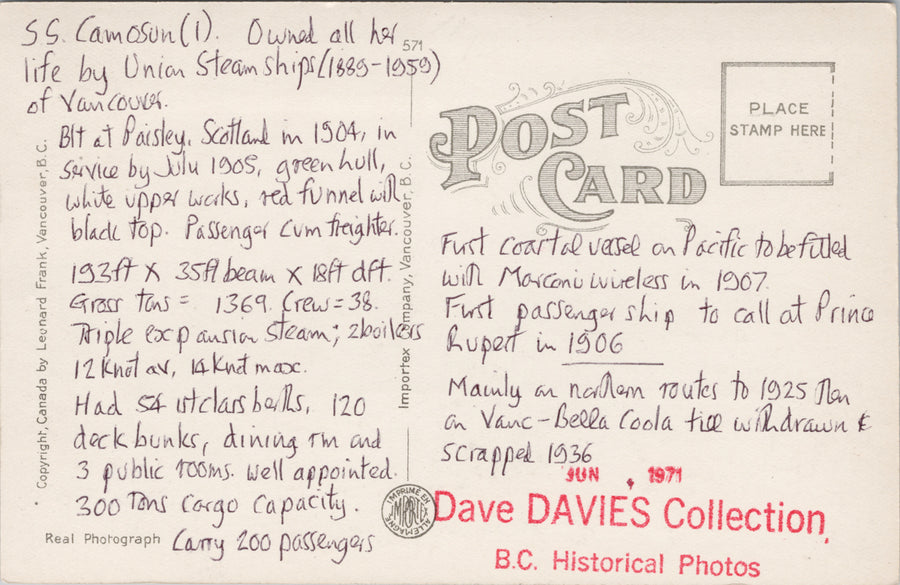 S.S. Camosun (1). Owned all her
life by Union Steamships (1889-1959)
of Vancouver.
Blt at Paisley, Scotland in 1904, in
service by July 1905, green hull,
white upper works, red funnel with
black top. Passenger cum freighter.
193ft X 35ft beam X 18ft dft.
Gross tons = 1369. Crew = 38.
Triple expansion Steam; 2 boilers
12 Knot av, 14 Knot max.
Had 54 1st class berths, 120
deck bunks, dining rm and
3 public rooms. well appointed.
300 Tons Cargo Capacity.
Carry 200 passengers
Real Photograph
Copyright, Canada by Leonard Frank, Vancouver, B.C.
571
Importex Company, Vancouver, B.C.
IMPRIMÉ EN ALLEMAGNE
IMPORTÉ
POST CARD
PLACE
STAMP HERE
First coastal vessel on Pacific to be fitted
with Marconi wireless in 1907.
First passenger ship to call at Prince
Rupert in 1906
Mainly on northern routes to 1925 then
on Vanc-Bella Coola till withdrawn &
scrapped 1936
JUN 1971
Dave DAVIES Collection
B.C. Historical Photos